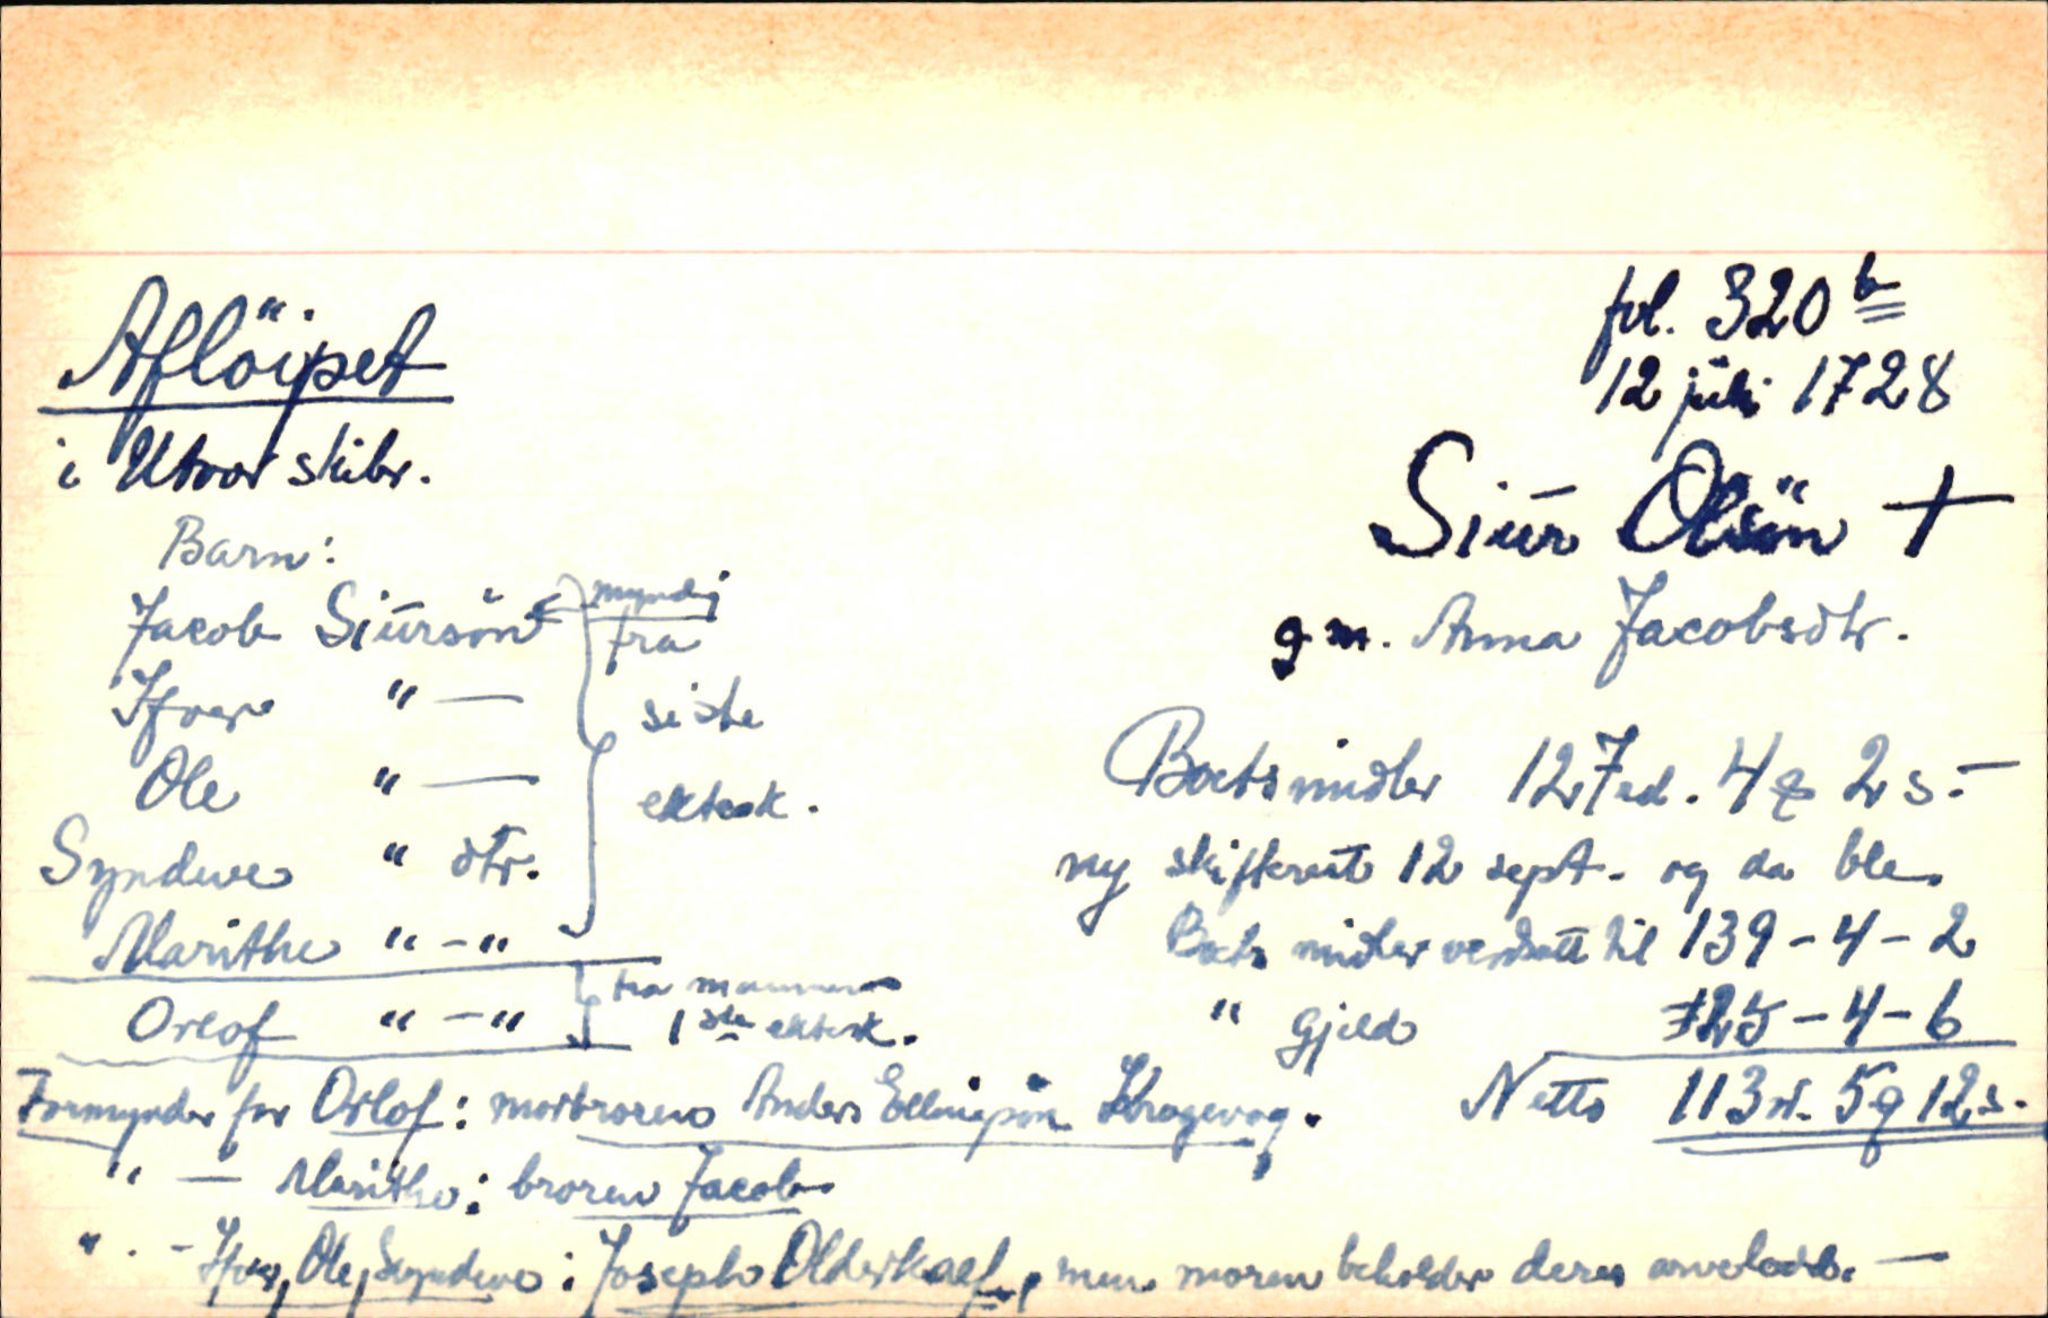 Aflöipet
i Utvær skibr.
fol. 320 b
12 juli 1728
Siūr Olsön +
gm. Anna Jacobsdtr.
Barn:
Jacob Siūrsön myndig
Ifver " —
Ole " —
Syndeve " dtr.
Marithe " - "
fra
siste
ektesk.
Orlof " - "
fra mannens
1ste ektesk.
Boets midler 127 rd. 4 q 2 s. -
ny skifterett 12 sept. og da ble
Boets midler verdsatt til 139 - 4 - 2
" Gjeld 25 - 4 - 6
Netto 113 rd. 5 q 12 s.
Formynder for Orlof: morbroren Anders Ellingsön Krogevog.
" — Marithe: broren Jacob
" . - Ifver, Ole, Syndeve: Joseph Olderkalf, men moren beholder deres arvelodd. —